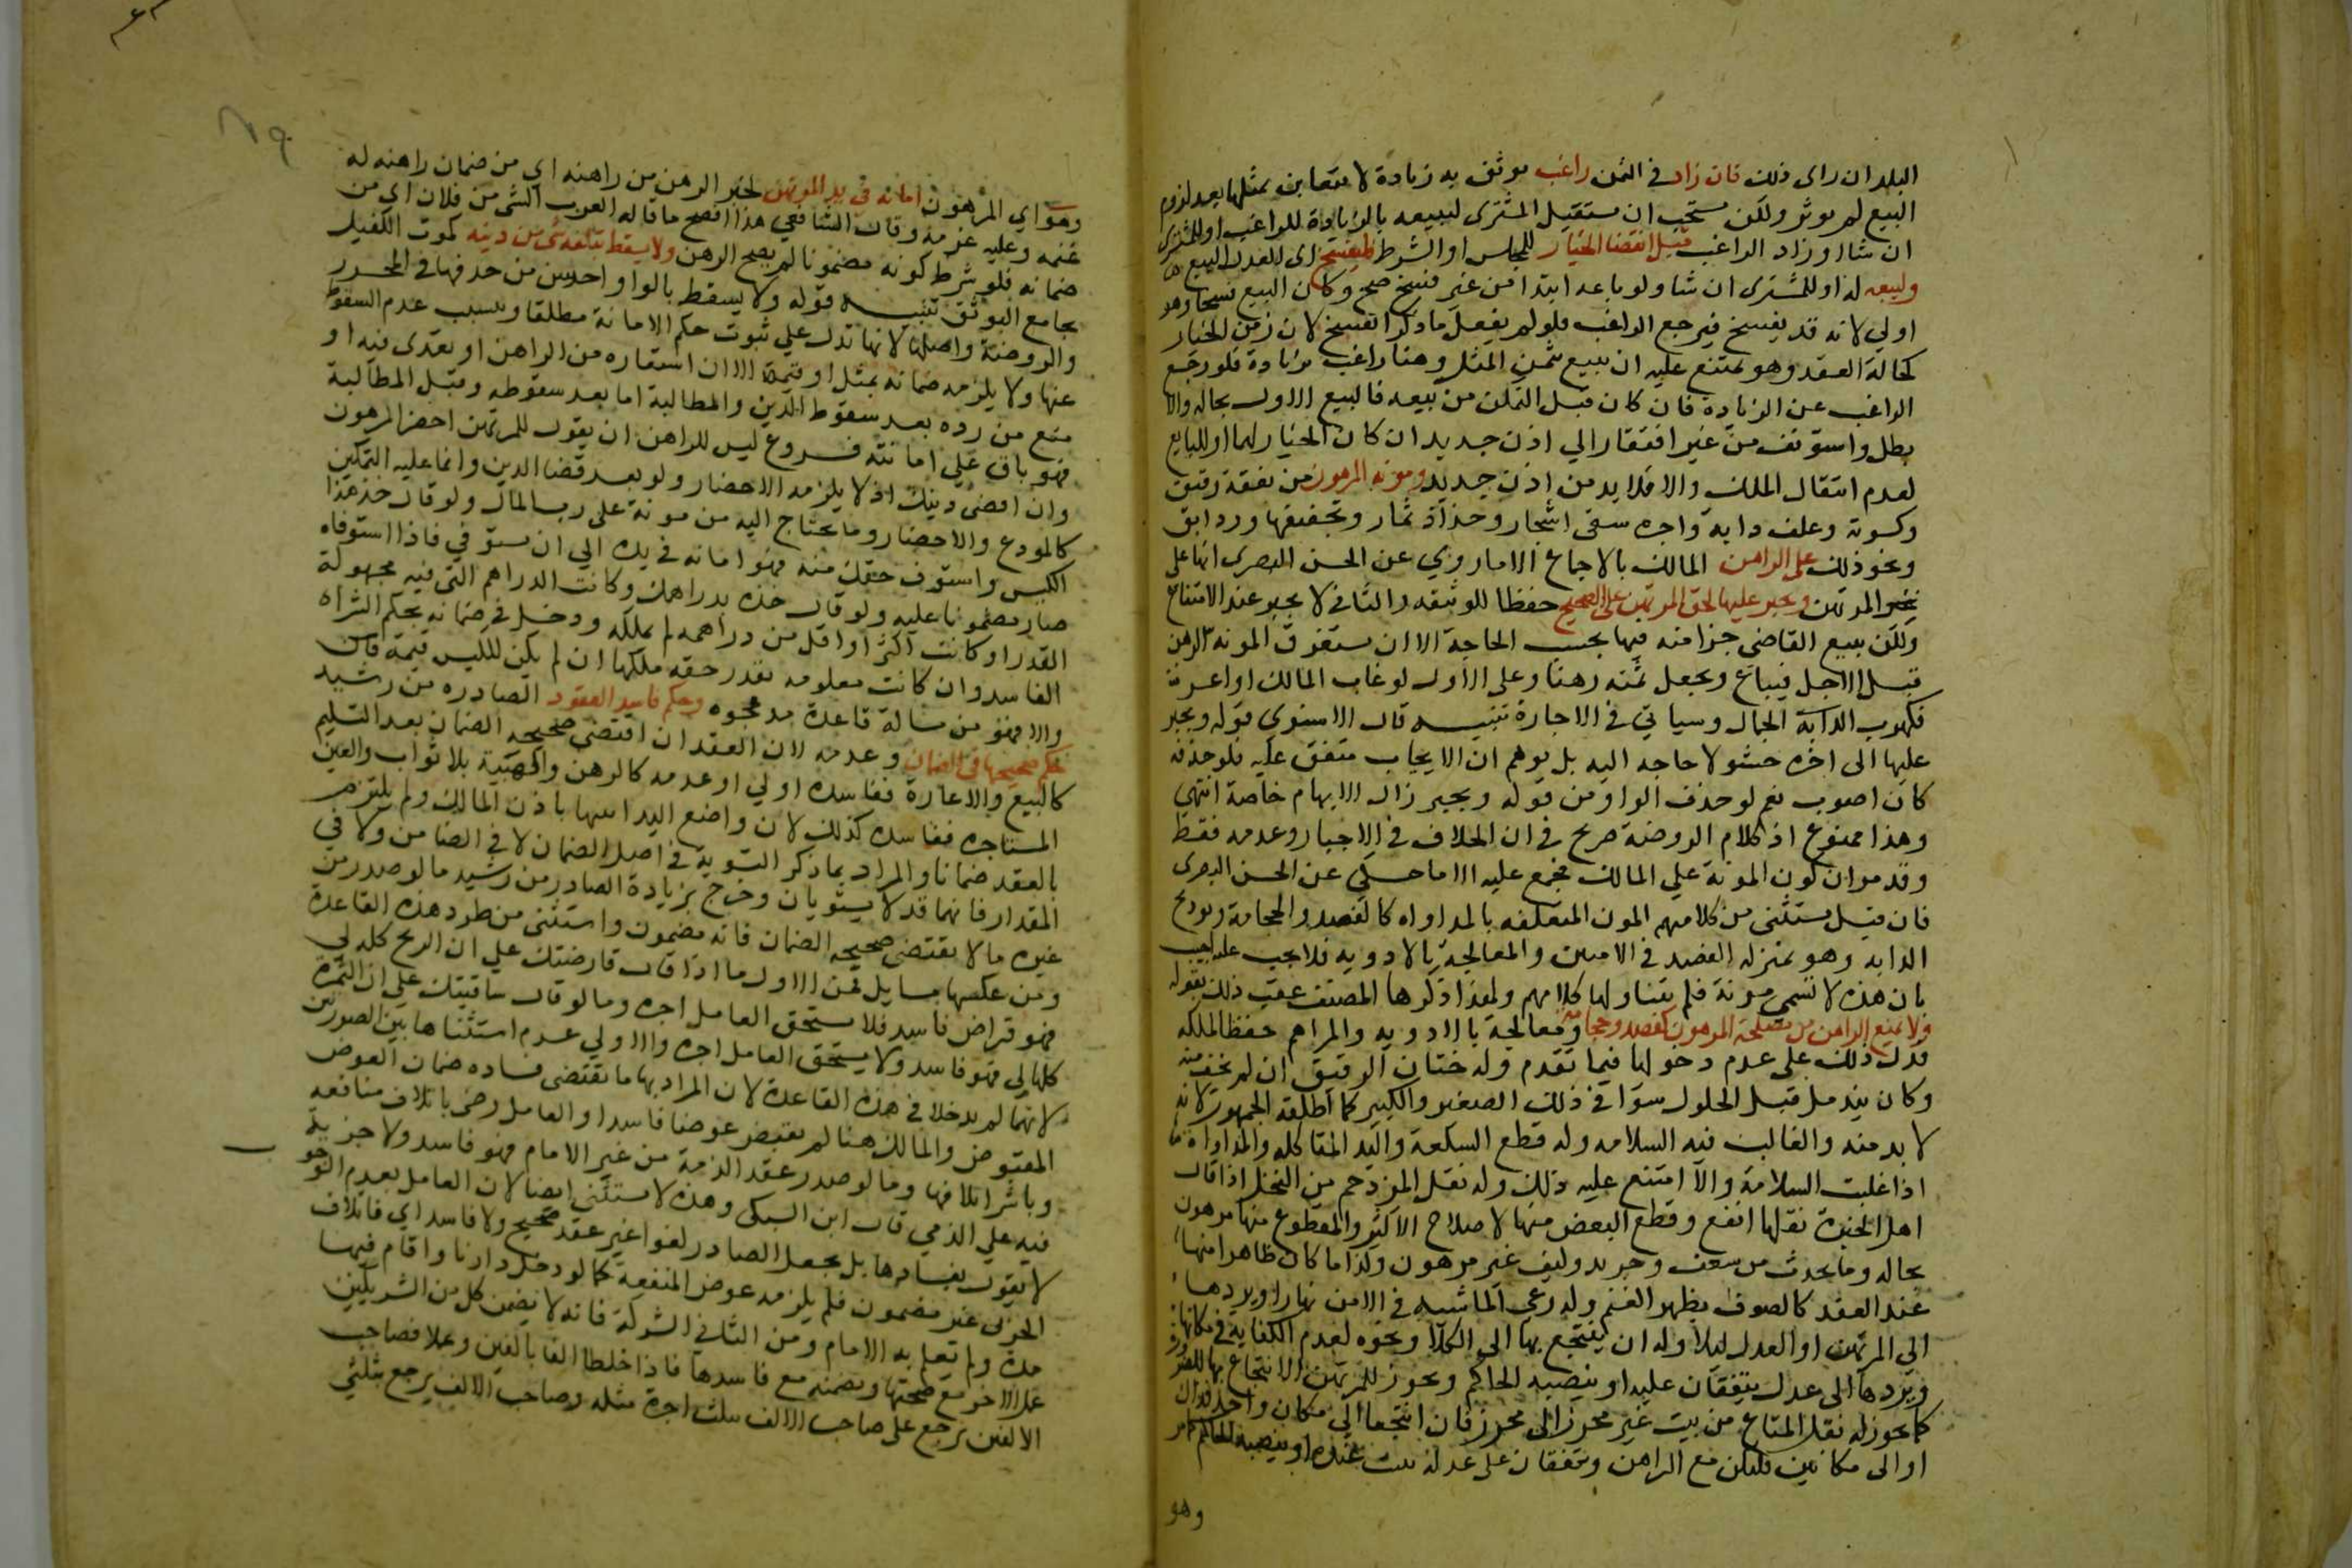 البلد ان راى ذلك فان زاد في الثمن راغب موثوق به زيادة لا يتغابن بمثلها بعد لزوم
البيع لم يوثر ولكن يستحب ان يستقيل المشترى ليبيعه بالزيادة للراغب او للمشترى
ان شاا وزاد الراغب قبل انقضا الخيار للمجلس او الشرط فليفسخ اى العدل البيع
وليبعه له او للمشترى ان شا ولو باعه ابتدا من غير فسخ صح وكان البيع فسخا وهو
اولى لانه قد يفسخ فيرجع الراغب فلو لم يفعل ما ذكر انفسخ لان زمن الخيار
كحالة العقد وهو يمتنع عليه ان يبيع بثمن المثل وهنا راغب بزيادة فلو رجع
الراغب عن الزيادة فان كان قبل التمكن من بيعه فالبيع الاول بحاله والا
بطل واستونف من غير افتقار الي اذن جديد ان كان الخيار لهما او للبايع
لعدم انتقال الملك والا فلا بد من اذن جديد ومونة المرهون من نفقة رقيق
وكسوة وعلف دابة واجرة سقى اشجار وجذاذ ثمار وتجفيفها ورد ابق
ونحو ذلك على الراهن المالك بالاجماع الا ما روي عن الحسن البصرى انها على
المرتهن ويجبر عليها لحق المرتهن على الصحيح حفظا للوثيقة والثاني لا يجبر عند الامتناع
ولكن يبيع القاضى جزا منه فيها بحسب الحاجة الا ان تستغرق المونة الرهن
قبل الاجل فيباع ويجعل ثمنه رهنا وعلى الاول لو غاب المالك او اعسر
فكهرب الجمال وسياتي في الاجارة تنبيه قال الاسنوي قوله ويجبر
عليها الى اخره حشو لا حاجة اليه بل يوهم ان الايجاب متفق عليه فلو حذفه
كان اصوب نعم لو حذف الواو من قوله ويجبر زال الايهام خاصة انتهى
وهذا ممنوع اذ كلام الروضة صريح في ان الخلاف في الاجبار وعدمه فقط
وقدموا ان كون المونة علي المالك مجمع عليه الا ما حكي عن الحسن البصرى
فان قيل يستثنى من كلامهم المون المتعلقه بالمداواه كالفصد والحجامة وتوديج
الدابه وهو بمنزلة الفصد في الادميين والمعالجة بالادويه فلا يجب عليه اجيب
بان هذه لا تسمى مونة فلم يتناولها كلامهم ولهذا ذكرها المصنف عقب ذلك بقوله
ولا يمنع الراهن من مصلحة المرهون كفصد وحجامة ومعالجة بالادويه والمراهم حفظا لملكه
فدل ذلك على عدم دخولها فيما تقدم وله ختان الرقيق ان لم يخف منه
وكان يندمل قبل الحلول سوا في ذلك الصغير والكبير كما اطلقه الجمهور لانه
لا بد منه والغالب فيه السلامه وله قطع السلعة واليد المتاكله والمداواة
اذا غلبت السلامة والا امتنع عليه ذلك وله نقل المزدحم من النخل اذا قال
اهل الخبرة نقلها انفع وقطع البعض منها لاصلاح الاكثر والمقطوع منها مرهون
بحاله وما يحدث من سعف وجريد وليف غير مرهون وكذا ما كان ظاهرا منها
عند العقد كالصوف بظهر الغنم وله رعي الماشيه في الامن نهارا ويردها
الي المرتهن او العدل ليلا وله ان ينتجع بها الى الكلا ونحوه لعدم الكفاية في مكانها
ويردها الى عدل يتفقان عليه او ينصبه الحاكم ويجوز للمرتهن الانتجاع بها
كما يجوز له نقل المتاع من بيت غير محرز الى محرز فان انتجعا الي مكان واحد فذاك
او الى مكانين فلتكن مع الراهن ويتفقان على عدل تبيت عنده او ينصبه الحاكم
وهو
وهو اي المرهون امانة في يد المرتهن لخبر الرهن من راهنه اي من ضمان راهنه له
غنمه وعليه غرمه وقال الشافعي هذا افصح ما قاله العرب الشى من فلان اي من
ضمانه فلو شرط كونه مضمونا لم يصح الرهن ولا يسقط بتلفه شى من دينه كموت الكفيل
بجامع التوثق تنبيه قوله ولا يسقط بالواو احسن من حذفها في المحرر
والروضة واصلها لانها تدل علي ثبوت حكم الامانة مطلقا وبسبب عدم السقوط
عنها ولا يلزمه ضمانه بمثل او قيمة الا ان استعاره من الراهن او تعدى فيه او
منع من رده بعد سقوط الدين والمطالبة اما بعد سقوطه وقبل المطالبة
فهو باق على امانته فروع ليس للراهن ان يقول للمرتهن احضر المرهون
وان اقضى دينك اذ لا يلزمه الاحضار ولو بعد قضا الدين وانما عليه التمكين
كالمودع والاحضار وما يحتاج اليه من مونة على رب المال ولو قال خذ هذا
الكيس واستوف حقك منه فهو امانة في يده الي ان يستوفي فاذا استوفاه
صار مضمونا عليه ولو قال خذه بدراهمك وكانت الدراهم التي فيه مجهولة
القدر او كانت اكثر او اقل من دراهمه لم يملكه ودخل في ضمانه بحكم الشراء
الفاسد وان كانت معلومه بقدر حقه ملكها ان لم يكن للكيس قيمة
والا فهو من مسالة قاعدة مد عجوه وحكم فاسد العقود الصادره من رشيد
حكم صحيحها في الضمان وعدمه لان العقد ان اقتضى صحيحه الضمان بعد التسليم
كالبيع والاعارة ففاسده اولي او عدمه كالرهن والهبة بلا ثواب والعين
المستاجره ففاسده كذلك لان واضع اليد اثبتها باذن المالك ولم يلتزم
بالعقد ضمانا والمراد بما ذكر التسوية في اصل الضمان لا في الضامن ولا في
المقدار فانهما قد لا يستويان وخرج بزيادة الصادر من رشيد ما لو صدر من
غيره ما لا يقتضى صحيحه الضمان فانه مضمون واستثنى من طرد هذه القاعدة
ومن عكسها مسايل فمن الاول ما اذا قال قارضتك علي ان الربح كله لي
فهو قراض فاسد فلا يستحق العامل اجره وما لو قال ساقيتك علي ان الثمرة
كلها لي فهو فاسد ولا يستحق العامل اجره والاولي عدم استثناها بين الصورتين
لانهما لم يدخلا في هذه القاعدة لان المراد بها ما يقتضى فساده ضمان العوض
المقبوض والمالك هنا لم يقبض عوضا فاسدا والعامل رضى باتلاف منافعه
وباشر اتلافها وما لو صدر عقد الذمة من غير الامام فهو فاسد ولا جزية
فيه علي الذمي قال ابن السبكى وهذه لا تستثنى ايضا لان العامل بعدم
لا يقول بفسادها بل يجعل الصادر لغوا غير عقد صحيح ولا فاسد اي فاتلاف
الحربي غير مضمون فلم يلزمه عوض المنفعة كما لو دخل دارنا واقام فيها
مدة ولم يعلم به الامام ومن الثاني الشركة فانه لا يضمن كل من الشريكين
عمل الاخر مع صحتها ويضمنه مع فاسدها فاذا خلطا الفا بالفين وعملا فصاحب
الالفين يرجع على صاحب الالف بثلث اجرة مثله وصاحب الالف يرجع بثلثي